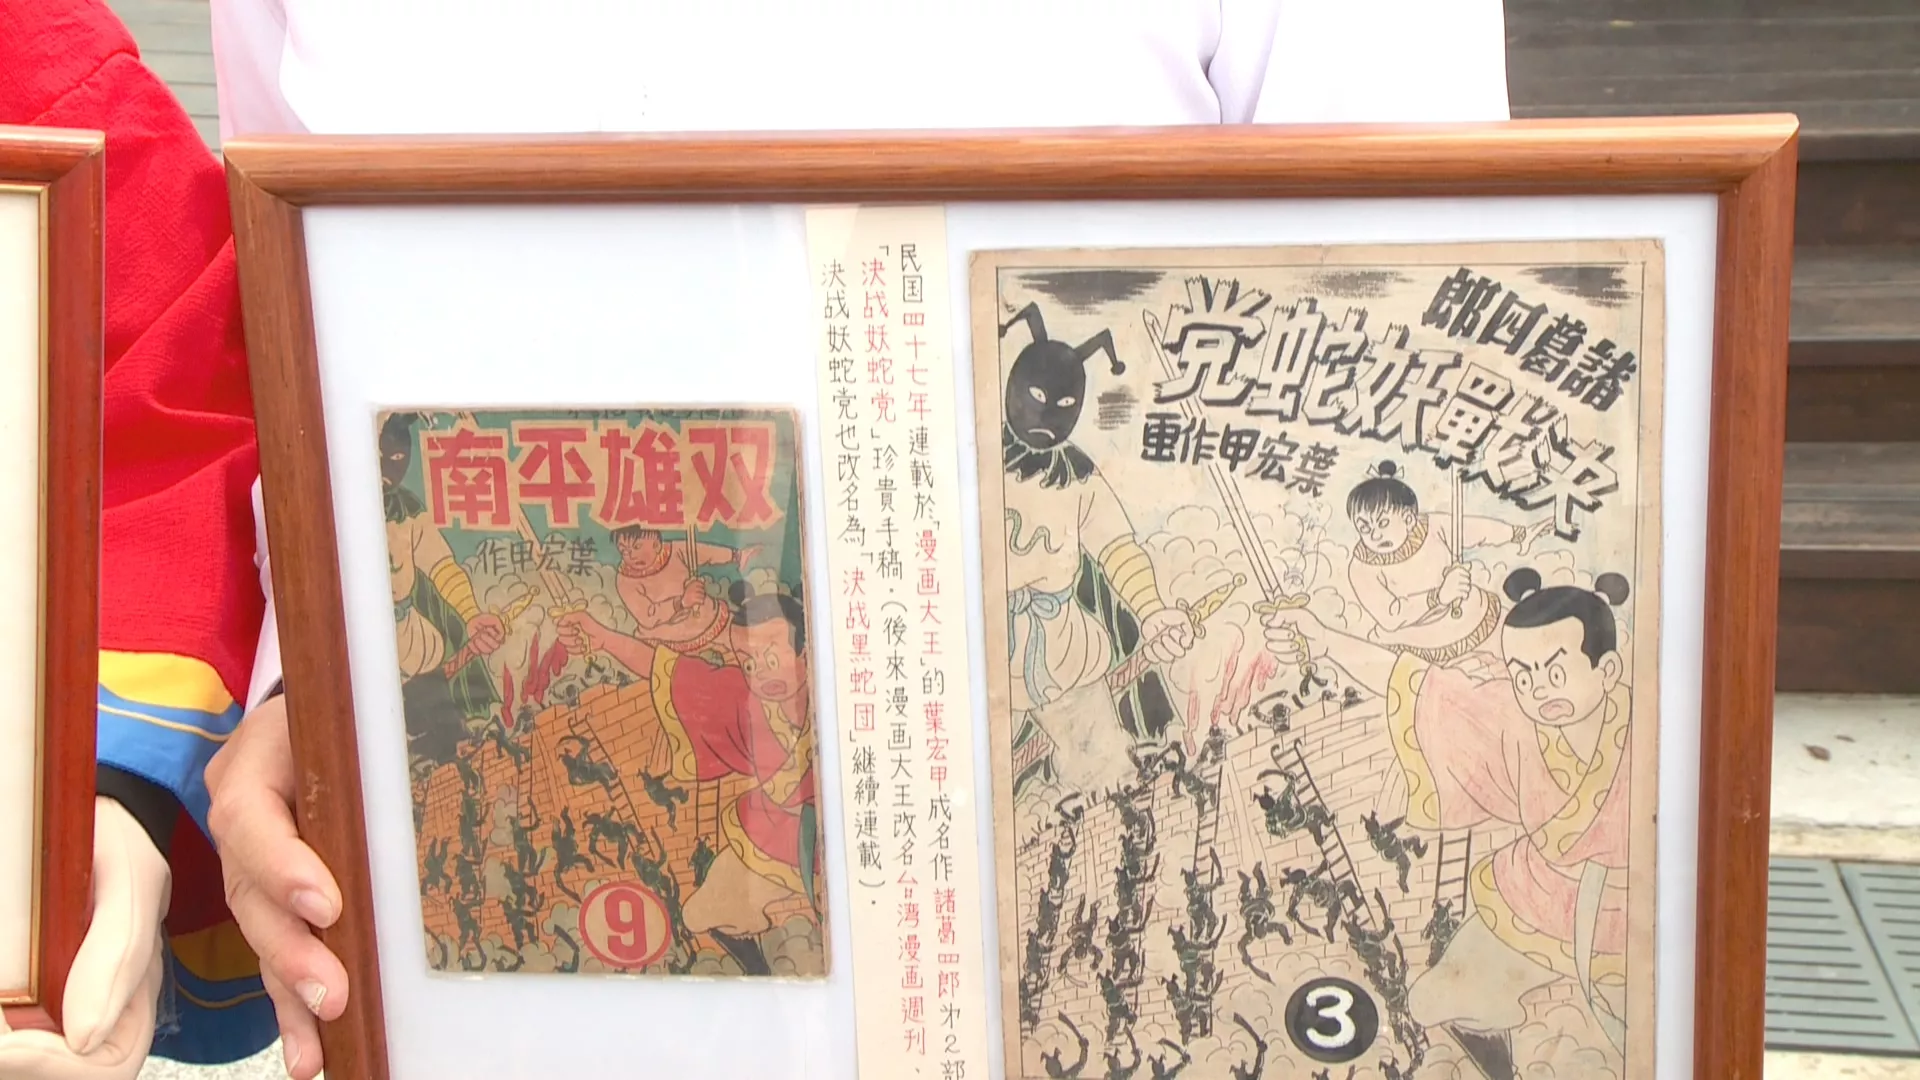 双雄平南
葉宏甲作
9
民国四十七年連載於「漫画大王」的葉宏甲成名作諸葛四郎㐧2部
「決战妖蛇党」珍貴手稿.(後來漫画大王改名台湾漫画週刊、
決战妖蛇党也改名為「決战黑蛇団」継續連載).
諸葛四郎
決戰妖蛇党
葉宏甲作重
3